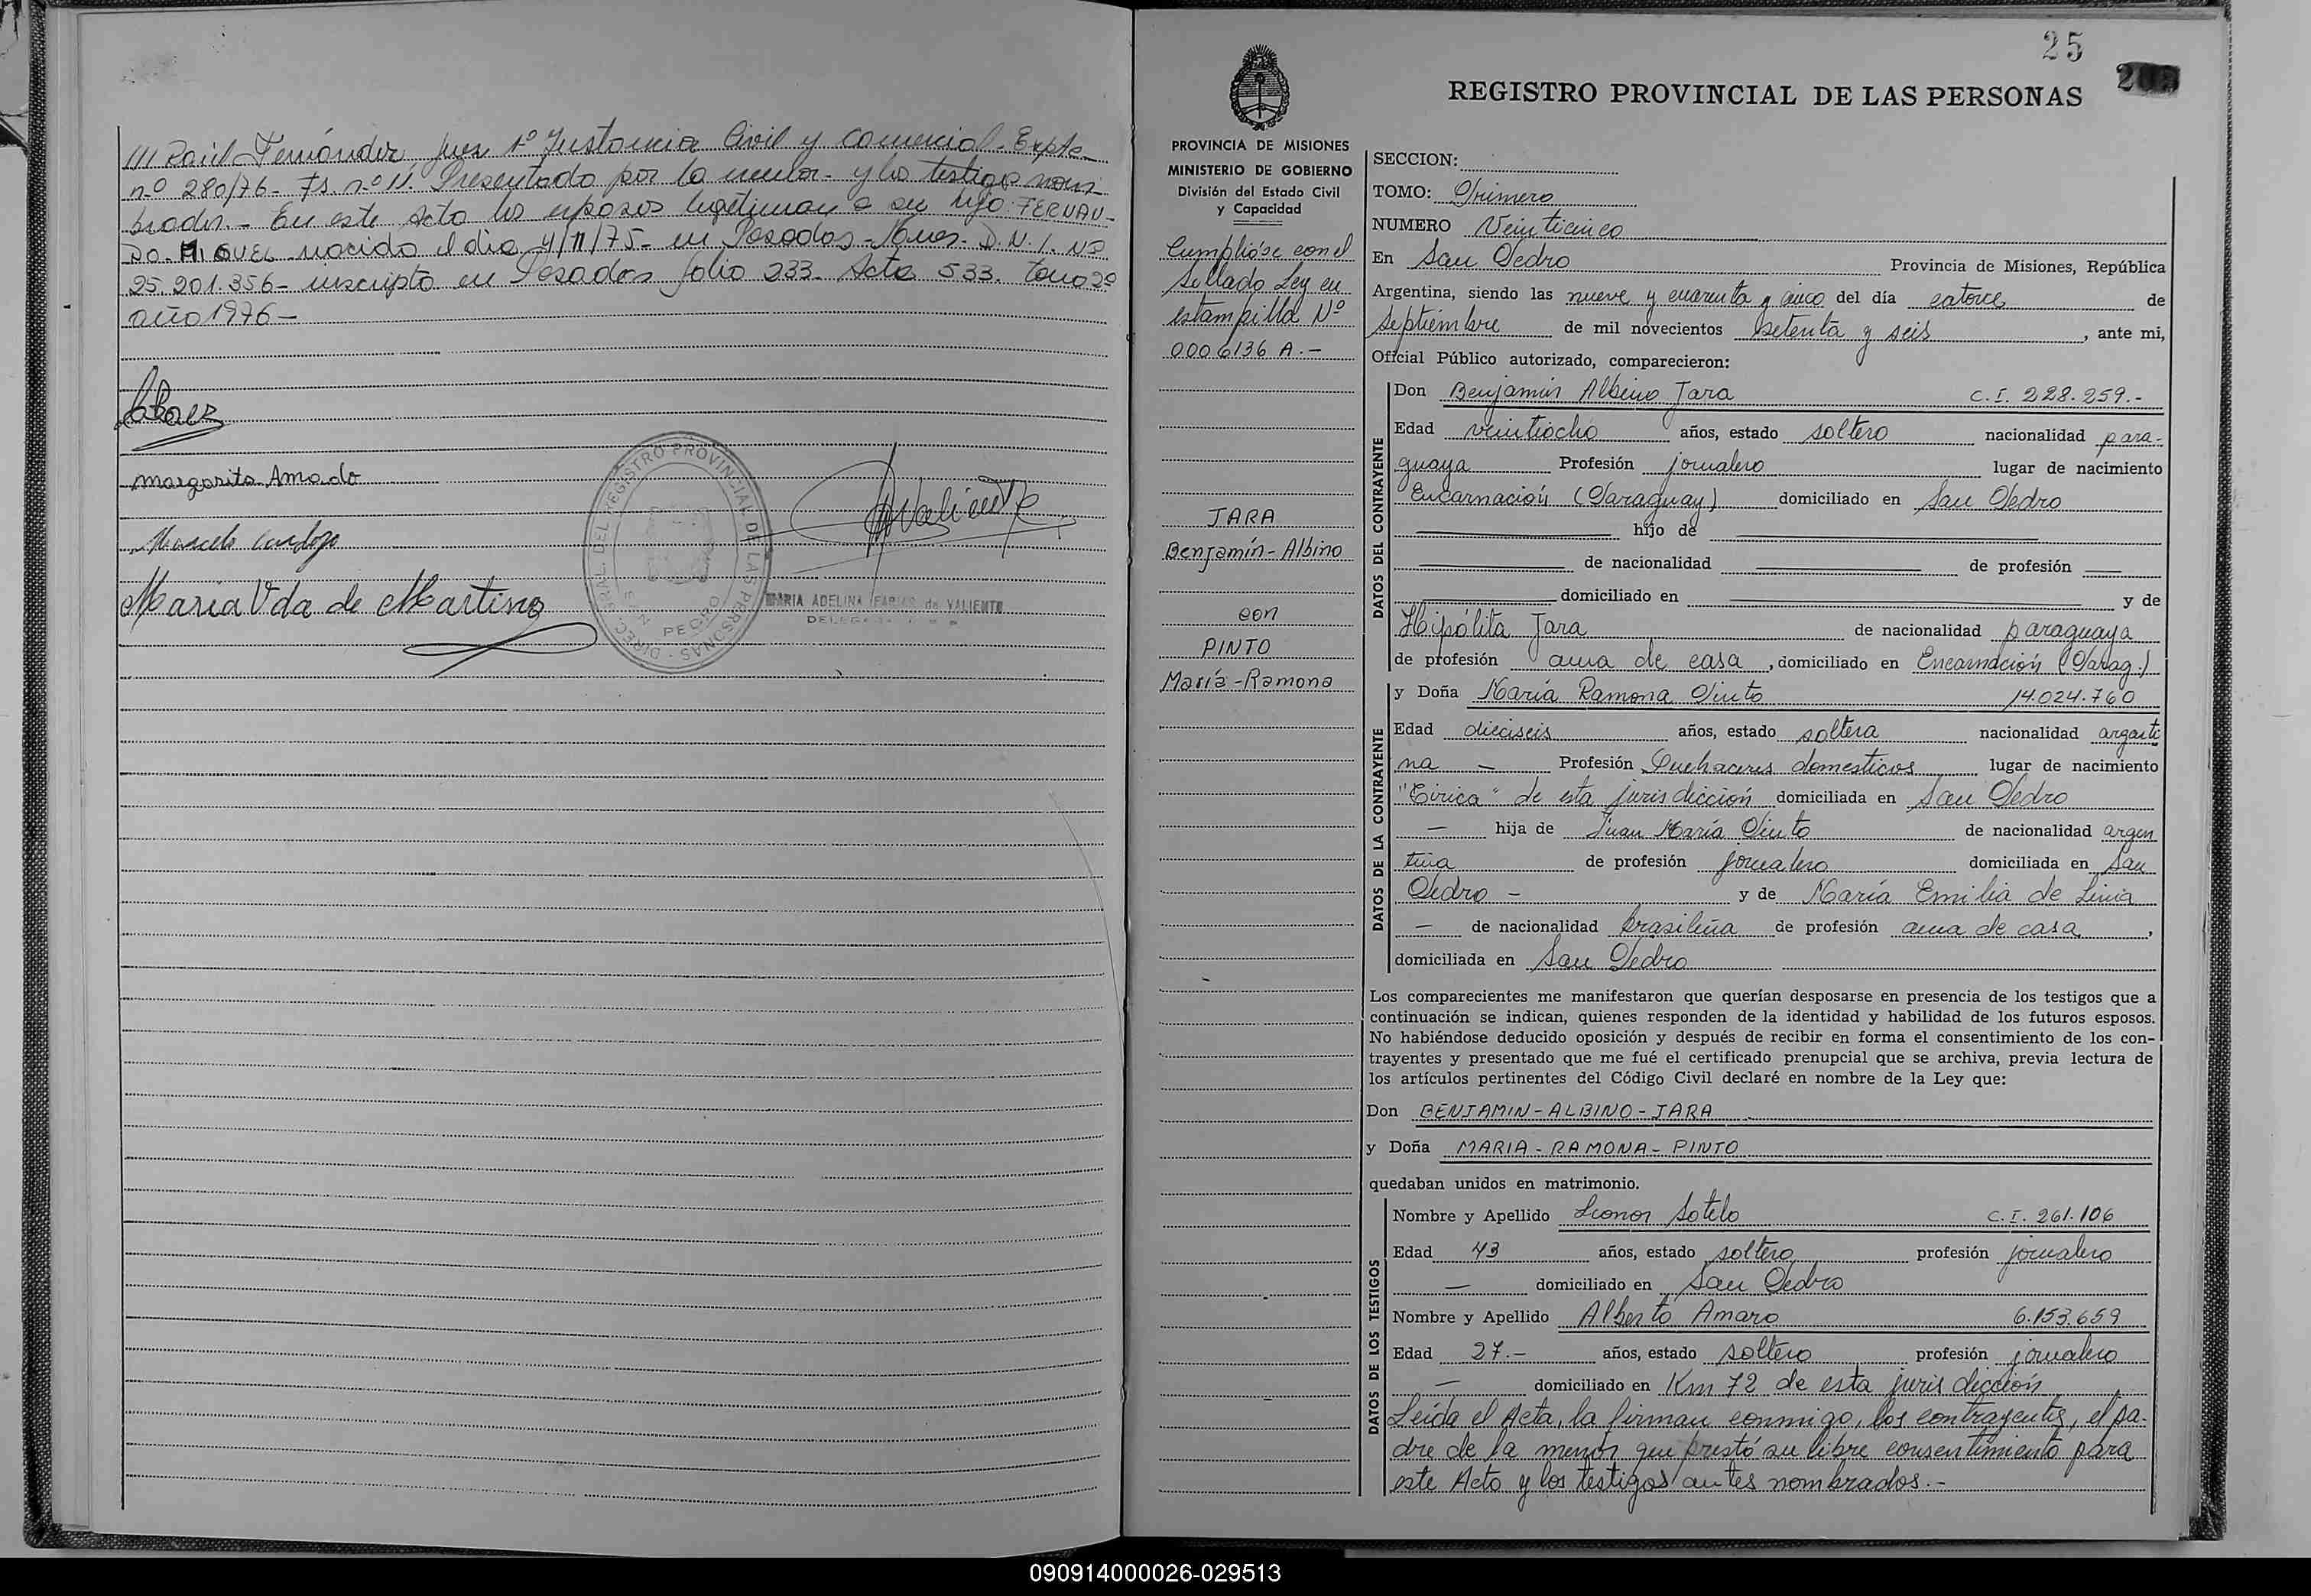 /// Raúl Fernández Juez 1º Instancia Civil y Comercial. Expte.
nº 280/76 - Fs. nº 11. Presentado por la menor - y los testigos nom-
brados. - En este acto los esposos legitiman a su hijo FERNAN-
DO MIGUEL nacido el día 4/11/75 - en Posadas - Mnes. D.N.I. Nº
25.201.356 - inscripto en Posados folio 233. Acta 533. tomo 2º
año 1976 -
margarita Amado
Marcelo
Maria Vda de Martinez
DIREC. GRAL. DEL REGISTRO PROVINCIAL DE LAS PERSONAS
SAN PEDRO
Valiente
MARIA ADELINA FARIAS de VALIENTE
25
REGISTRO PROVINCIAL DE LAS PERSONAS
PROVINCIA DE MISIONES
MINISTERIO DE GOBIERNO
División del Estado Civil
y Capacidad
Cumplióse con el
Sellado Ley en
estampilla Nº
0006136 A. -
JARA
Benjamín - Albino
con
PINTO
María - Ramona
SECCION:
TOMO: Primero
NUMERO Veinticinco
En San Pedro Provincia de Misiones, República
Argentina, siendo las nueve y cuarenta y cinco del día catorce de
Septiembre de mil novecientos setenta y seis, ante mi,
Oficial Público autorizado, comparecieron:
DATOS DEL CONTRAYENTE
Don Benjamín Albino Jara C.I. 228.259.-
Edad veintiocho años, estado soltero nacionalidad para-
guaya Profesión jornalero lugar de nacimiento
Encarnación (Paraguay) domiciliado en San Pedro
hijo de
de nacionalidad de profesión
domiciliado en y de
Hipólita Jara de nacionalidad paraguaya
de profesión ama de casa, domiciliado en Encarnación (Parag.)
DATOS DE LA CONTRAYENTE
y Doña María Ramona Pinto 14.024.760
Edad dieciseis años, estado soltera nacionalidad argenti
na - Profesión Quehaceres domesticos lugar de nacimiento
"Pirica" de esta jurisdicción domiciliada en San Pedro
- hija de Juan María Pinto de nacionalidad argen
tina de profesión jornalero domiciliada en San
Pedro - y de María Emilia de Lima
- de nacionalidad brasileña de profesión ama de casa,
domiciliada en San Pedro
Los comparecientes me manifestaron que querían desposarse en presencia de los testigos que a
continuación se indican, quienes responden de la identidad y habilidad de los futuros esposos.
No habiéndose deducido oposición y después de recibir en forma el consentimiento de los con-
trayentes y presentado que me fué el certificado prenupcial que se archiva, previa lectura de
los artículos pertinentes del Código Civil declaré en nombre de la Ley que:
Don BENJAMIN - ALBINO - JARA
y Doña MARIA - RAMONA - PINTO
quedaban unidos en matrimonio.
DATOS DE LOS TESTIGOS
Nombre y Apellido Leonor Sotelo C.I. 261.106
Edad 43 años, estado soltero profesión jornalero
- domiciliado en San Pedro
Nombre y Apellido Alberto Amaro 6.153.659
Edad 27.- años, estado soltero profesión jornalero
- domiciliado en Km 72 de esta jurisdicción
Leída el Acta, la firman conmigo, los contrayentes, el pa-
dre de la menor que prestó su libre consentimiento para
este Acto y los testigos antes nombrados. -
090914000026-029513